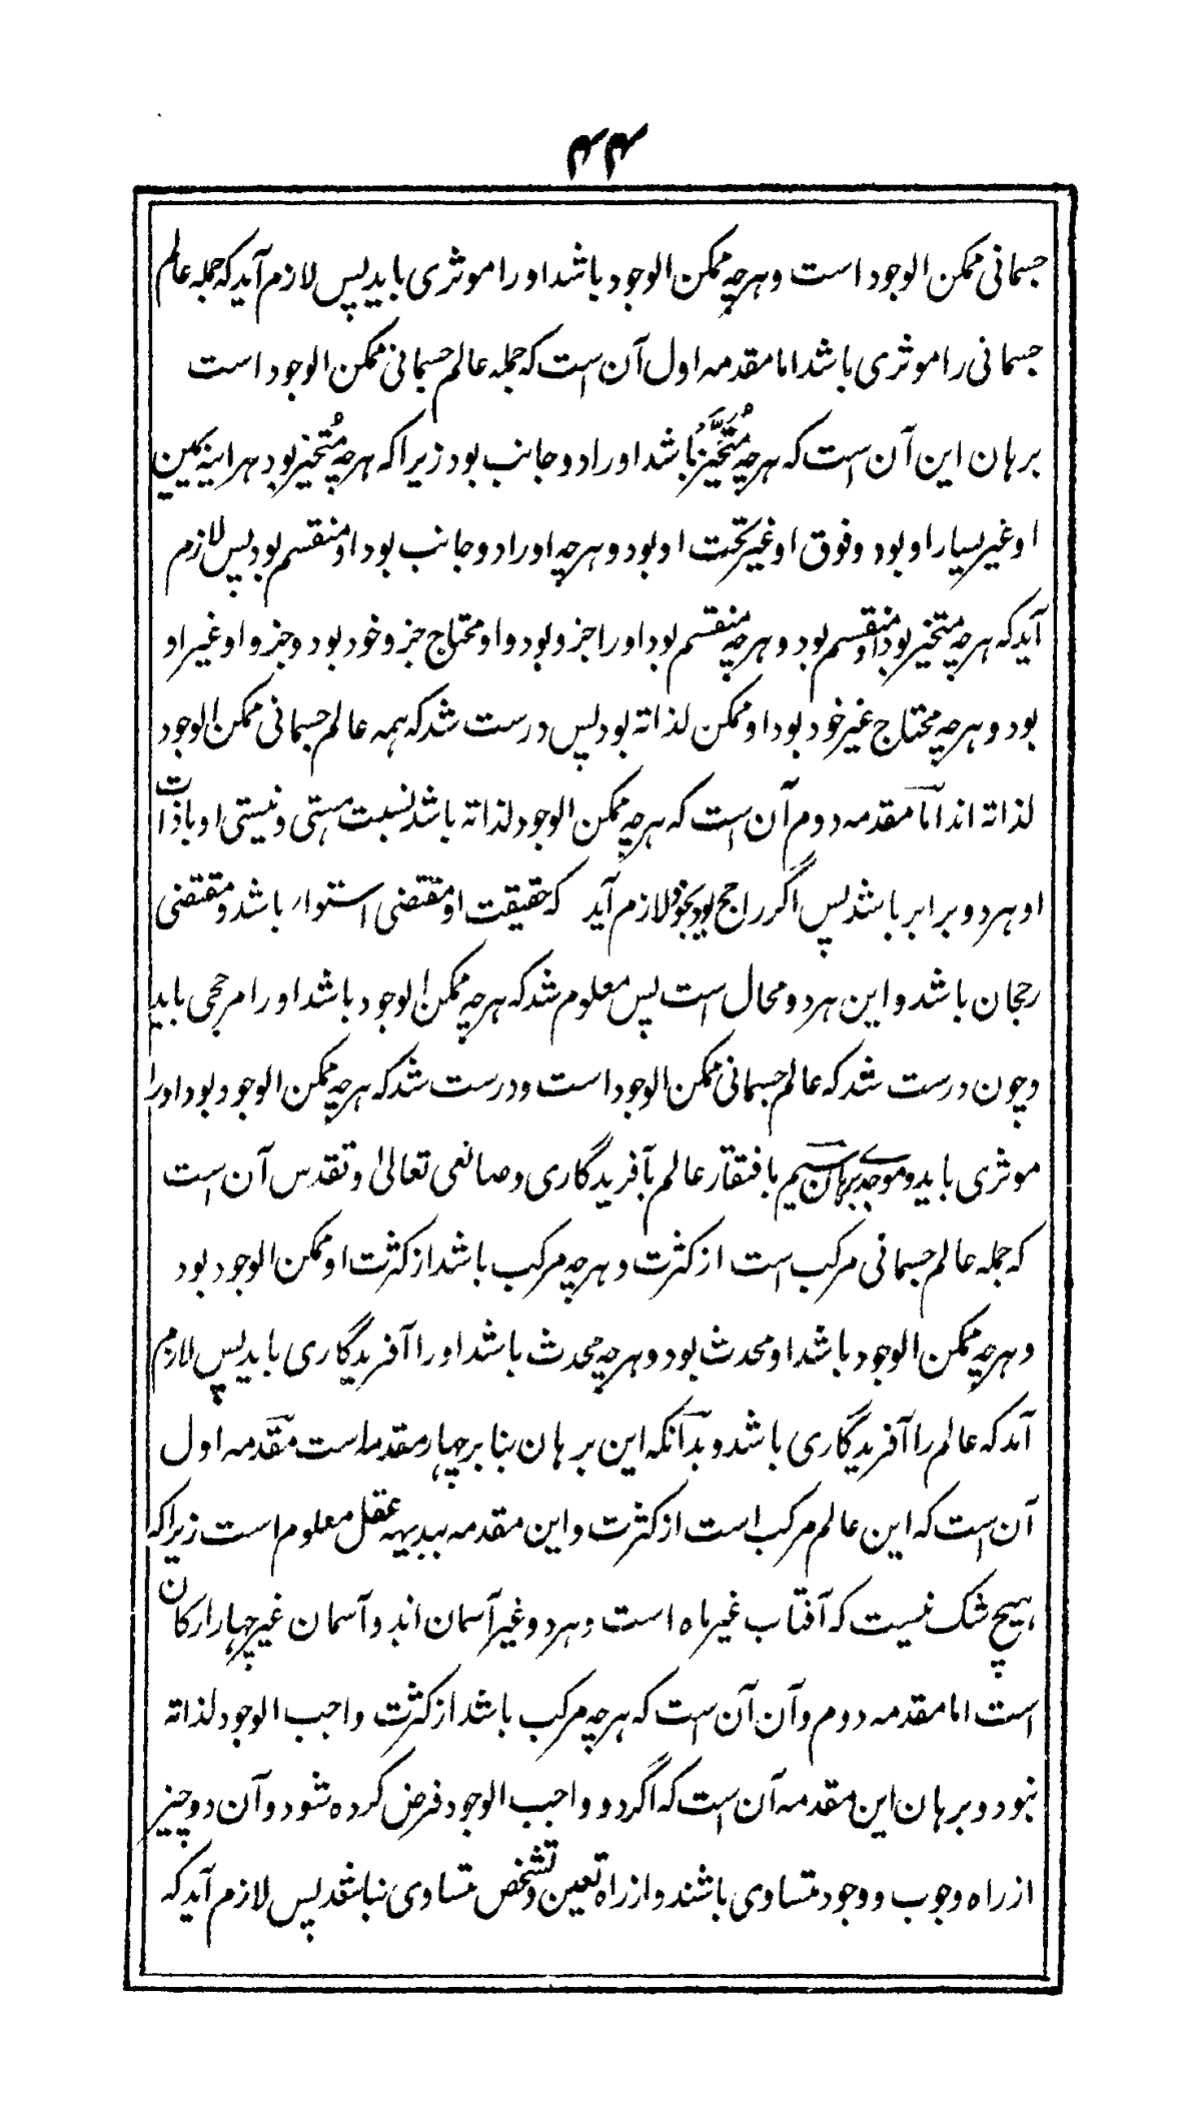 ۴۴
جسمانی ممکن الوجود است و هرچه ممکن الوجود باشد او را موثری باید پس لازم آید که جمله عالم
جسمانی را موثری باشد اما مقدمه اول آن است که جمله عالم جسمانی ممکن الوجود است
برهان این آن است که هرچه مُتَحَیِّز باشد او را دو جانب بود زیرا که هرچه مُتحیز بود هراینه یمین
او غیر یسار او بود و فوق او غیر تحت او بود و هرچه او را دو جانب بود او منقسم بود پس لازم
آید که هرچه متحیز بود او منقسم بود و هرچه منقسم بود او را جزو بود و او محتاج جزو خود بود و جزو او غیر او
بود و هرچه محتاج غیر خود بود او ممکن لذاته بود پس درست شد که همه عالم جسمانی ممکن الوجود
لذاته اند امّا مقدمه دوم آن است که هرچه ممکن الوجود لذاته باشد نسبت هستی و نیستی او با ذات
او هر دو برابر باشد پس اگر راجح بود بخود لازم آید که حقیقت او مقتضی استوار باشد و مقتضی
رجحان باشد و این هر دو محال است پس معلوم شد که هرچه ممکن الوجود باشد او را مرجحی باید
و چون درست شد که عالم جسمانی ممکن الوجود است و درست شد که هرچه ممکن الوجود بود او را
موثری باید و موجدے برهان سیم بافتقار عالم بآفریدگاری و صانعی تعالیٰ و تقدس آن است
که جمله عالم جسمانی مرکب است از کثرت و هرچه مرکب باشد از کثرت او ممکن الوجود بود
و هرچه ممکن الوجود باشد او محدث بود و هرچه محدث باشد او را آفریدگاری باید پس لازم
آمد که عالم را آفریدگاری باشد و بدآنکه این برهان بنا بر چهار مقدماست مقدمه اول
آن است که این عالم مرکب است از کثرت و این مقدمه ببدیهه عقل معلوم است زیرا که
هیچ شک نیست که آفتاب غیر ماه است و هر دو غیر آسمان اند و آسمان غیر چهار ارکان
است اما مقدمه دوم و آن آن است که هرچه مرکب باشد از کثرت واجب الوجود لذاته
نبود و برهان این مقدمه آن است که اگر دو واجب الوجود فرض کرده شود و آن دو چیز
از راه وجوب و وجود متساوی باشند و از راه تعین و تشخص متساوی نباشد پس لازم آید که